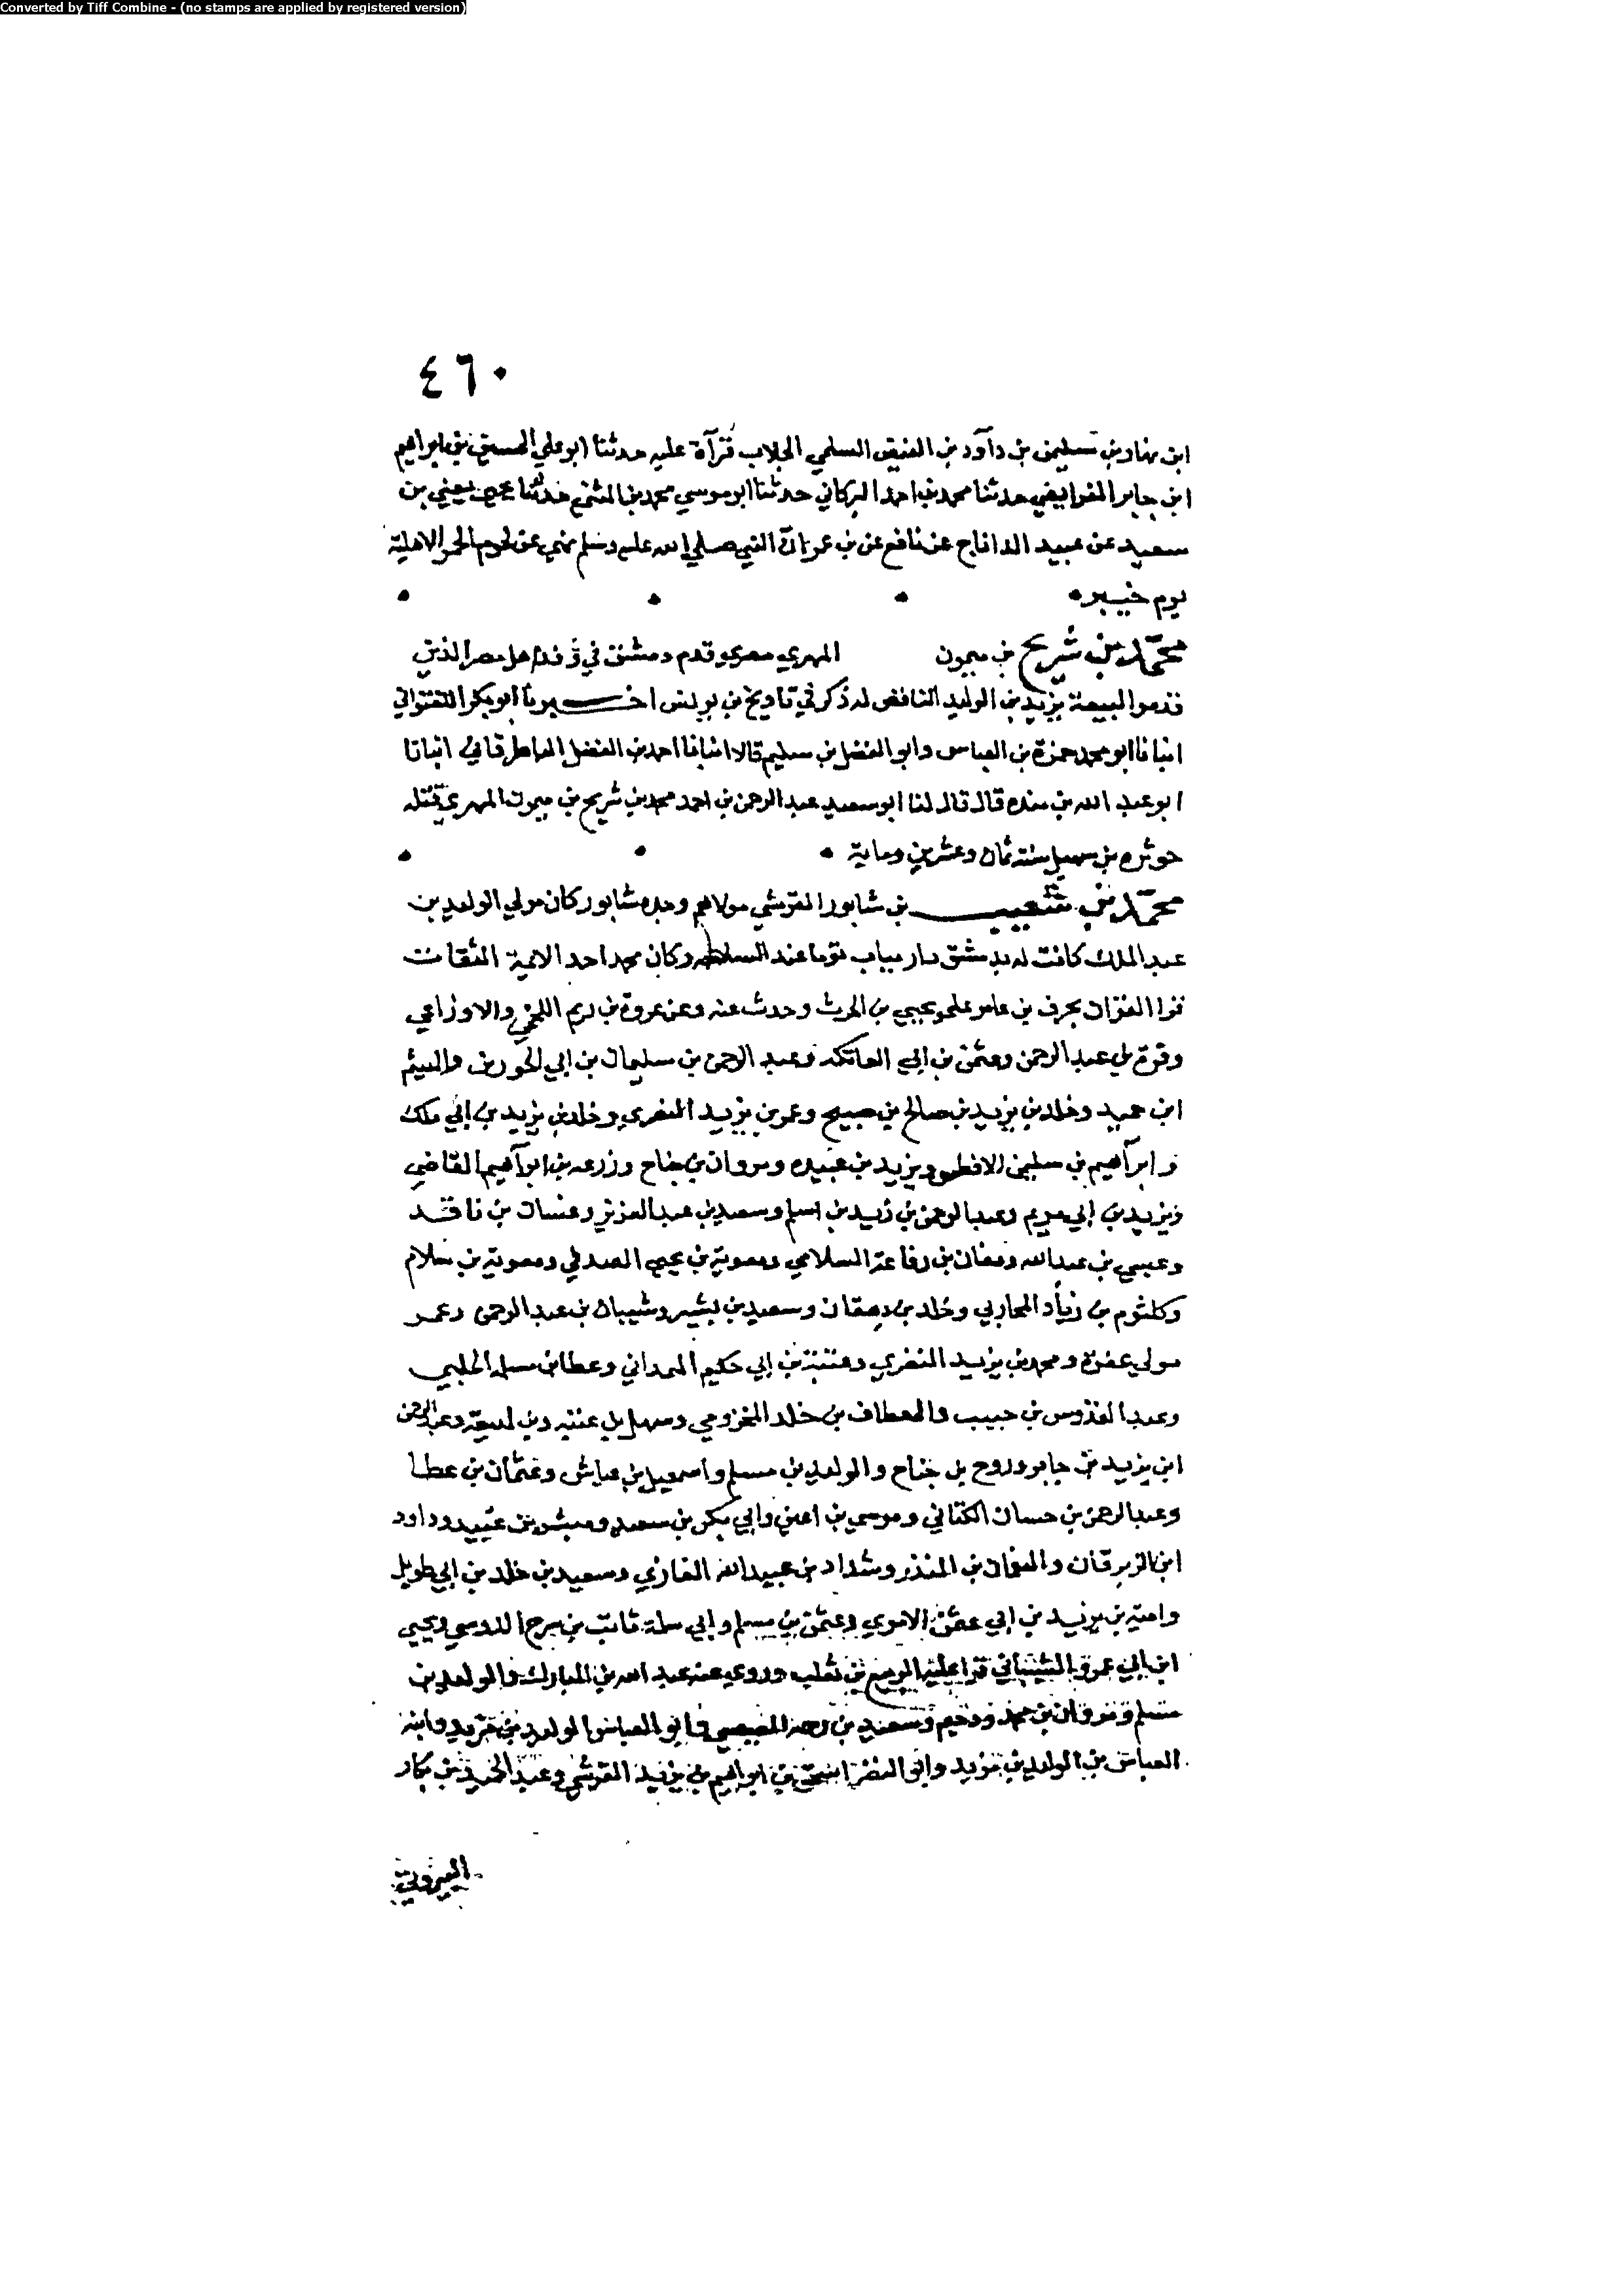 Converted by Tiff Combine - (no stamps are applied by registered version)
٤٦٠
ابن سليمن بن داود بن الفيض السلمي الجلاب قرآة عليه حدثنا ابو علي الحسين بن ابراهيم
ابن جابر الفرايضي حدثنا محمد بن احمد حدثنا ابو موسي محمد بن المثني حدثنا يحيى يعني بن
سعيد عن عبيد الله عن نافع عن بن عمر ان النبي صلي الله عليه وسلم نهي عن لحوم الحمر الاهلية
يوم خيبر
محمد بن شريح بن ميمون المهري مصري قدم دمشق في وفد اهل مصر الذين
قدموا لبيعة يزيد بن الوليد الناقص له ذكر في تاريخ بن يونس اخبرنا ابو بكر اللفتواني
انبانا ابو محمد حمزة بن العباس وابو الفضل بن سليم قالا انبانا احمد بن الفضل الباطرقاني انبانا
ابو عبد الله بن منده قال قال لنا ابو سعيد عبد الرحمن بن احمد محمد بن شريح بن ميمون المهري قتله
حوثره بن سهيل سنة ثمان وعشرين وماية
محمد بن شعيب بن شابور القرشي مولاهم وجده شابور كان مولي الوليد بن
عبد الملك كانت له بدمشق دار بباب توما عند وكان محمد احد الايمة الثقات
قرا القران بحرف بن عامر علي يحيي بن الحرث وحدث عنه وعن عروة بن رويم اللخمي والاوزاعي
وقرة بن عبد الرحمن وعثمن بن ابي العاتكه وعبد الرحمن بن سليمان بن ابي الجون والهيثم
ابن حميد وخالد بن يزيد بن صالح بن صبيح وعمر بن يزيد النصري وخالد بن يزيد بن ابي ملك
وابرآهيم بن سليمن الافطس ويزيد بن عبيده ومروان بن جناح وزرعه بن ابرآهيم القاضي
ويزيد بن ابي مريم وعبد الرحمن بن زيد بن اسلم وسعيد بن عبد العزيز وغسان بن ناقد
وعيسي بن عبد الله ومعان بن رفاعة السلامي ومعوية بن يحيى الصدفي ومعوية بن سلام
وكلثوم بن زياد المحاربي وخلد بن دهقان وسعيد بن بشير وشيبان بن عبد الرحمن وعمر
مولي غفرة ومحمد بن يزيد النصري وعتبة بن ابي حكيم الهمداني وعطا بن مسلم الحلبي
وعبد القدوس بن حبيب والعطاف بن خلد المخزومي وبن لهيعة وعبد الرحمن
ابن يزيد بن جابر وروح بن جناح والوليد بن مسلم واسمعيل بن عياش وعثمان بن عطا
وعبد الرحمن بن حسان الكناني وموسي بن اعين وابي بكر بن سعيد ومبشر بن عبيد وداود
ابن الزبرقان والنعمان بن المنذر وشداد بن عبيد الله القاري وسعيد بن خلد بن ابي طويل
وامية بن يزيد بن ابي عثمن الاموي وعثمن بن مسلم وابي سلمة ثابت بن سرج الدوسي ويحيي
ابن ابي عمرو الشيباني قرا عليه الربيع بن ثعلب وروي عنه عبد الله بن المبارك والوليد بن
مسلم ومروان بن محمد ودحيم وسعيد بن رحمه المصيصي وابو العباس الوليد بن مزيد وابنه
العباس بن الوليد بن مزيد وابي النضر اسحق بن ابراهيم بن يزيد القرشي وعبد الحميد بن بكار
البيروتي